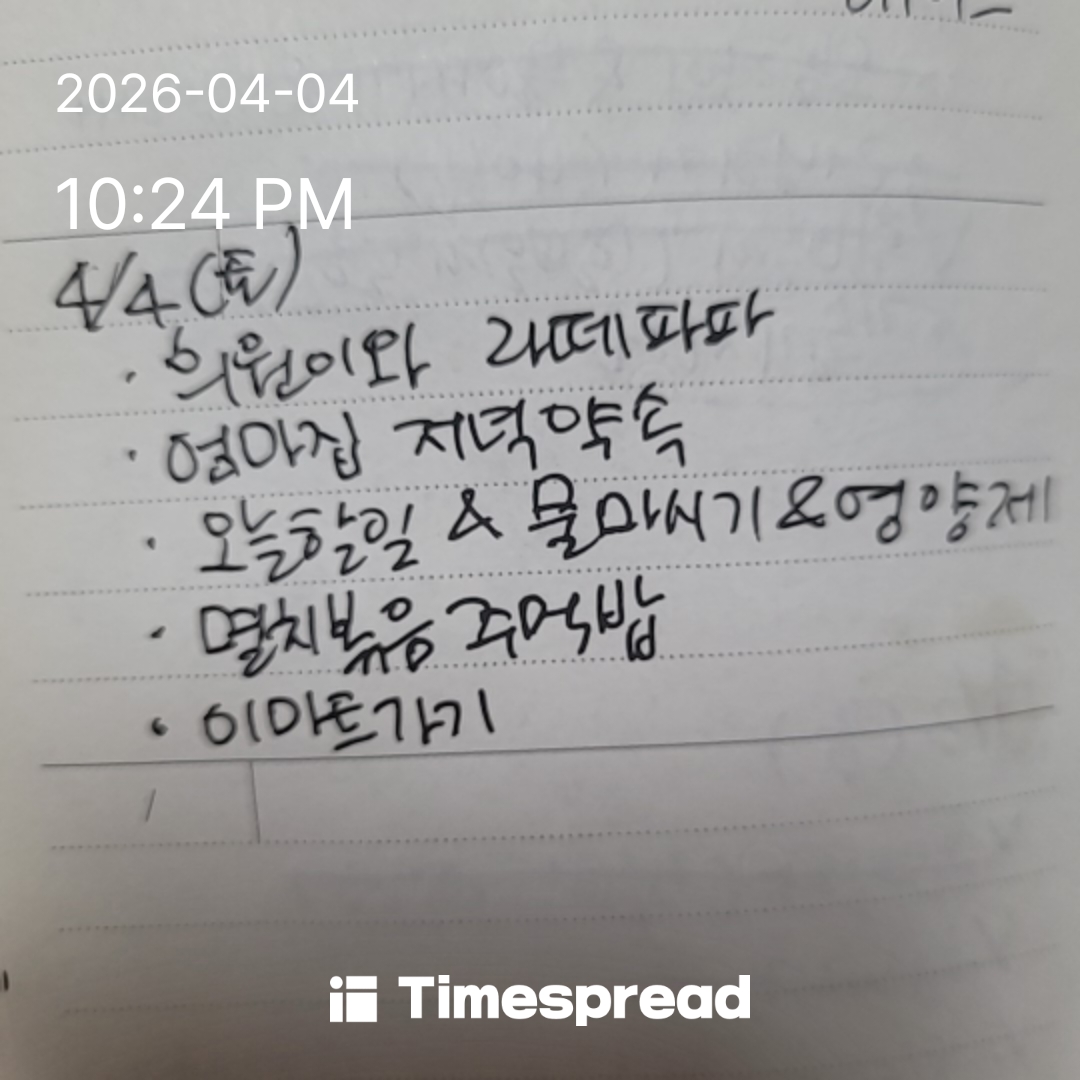 2026-04-04
10:24 PM
4/4 (토)
· 희원이와 라떼파파
· 엄마집 저녁약속
· 오늘할일 & 물마시기 & 영양제
· 멸치볶음 주먹밥
· 이마트가기
/
Timespread